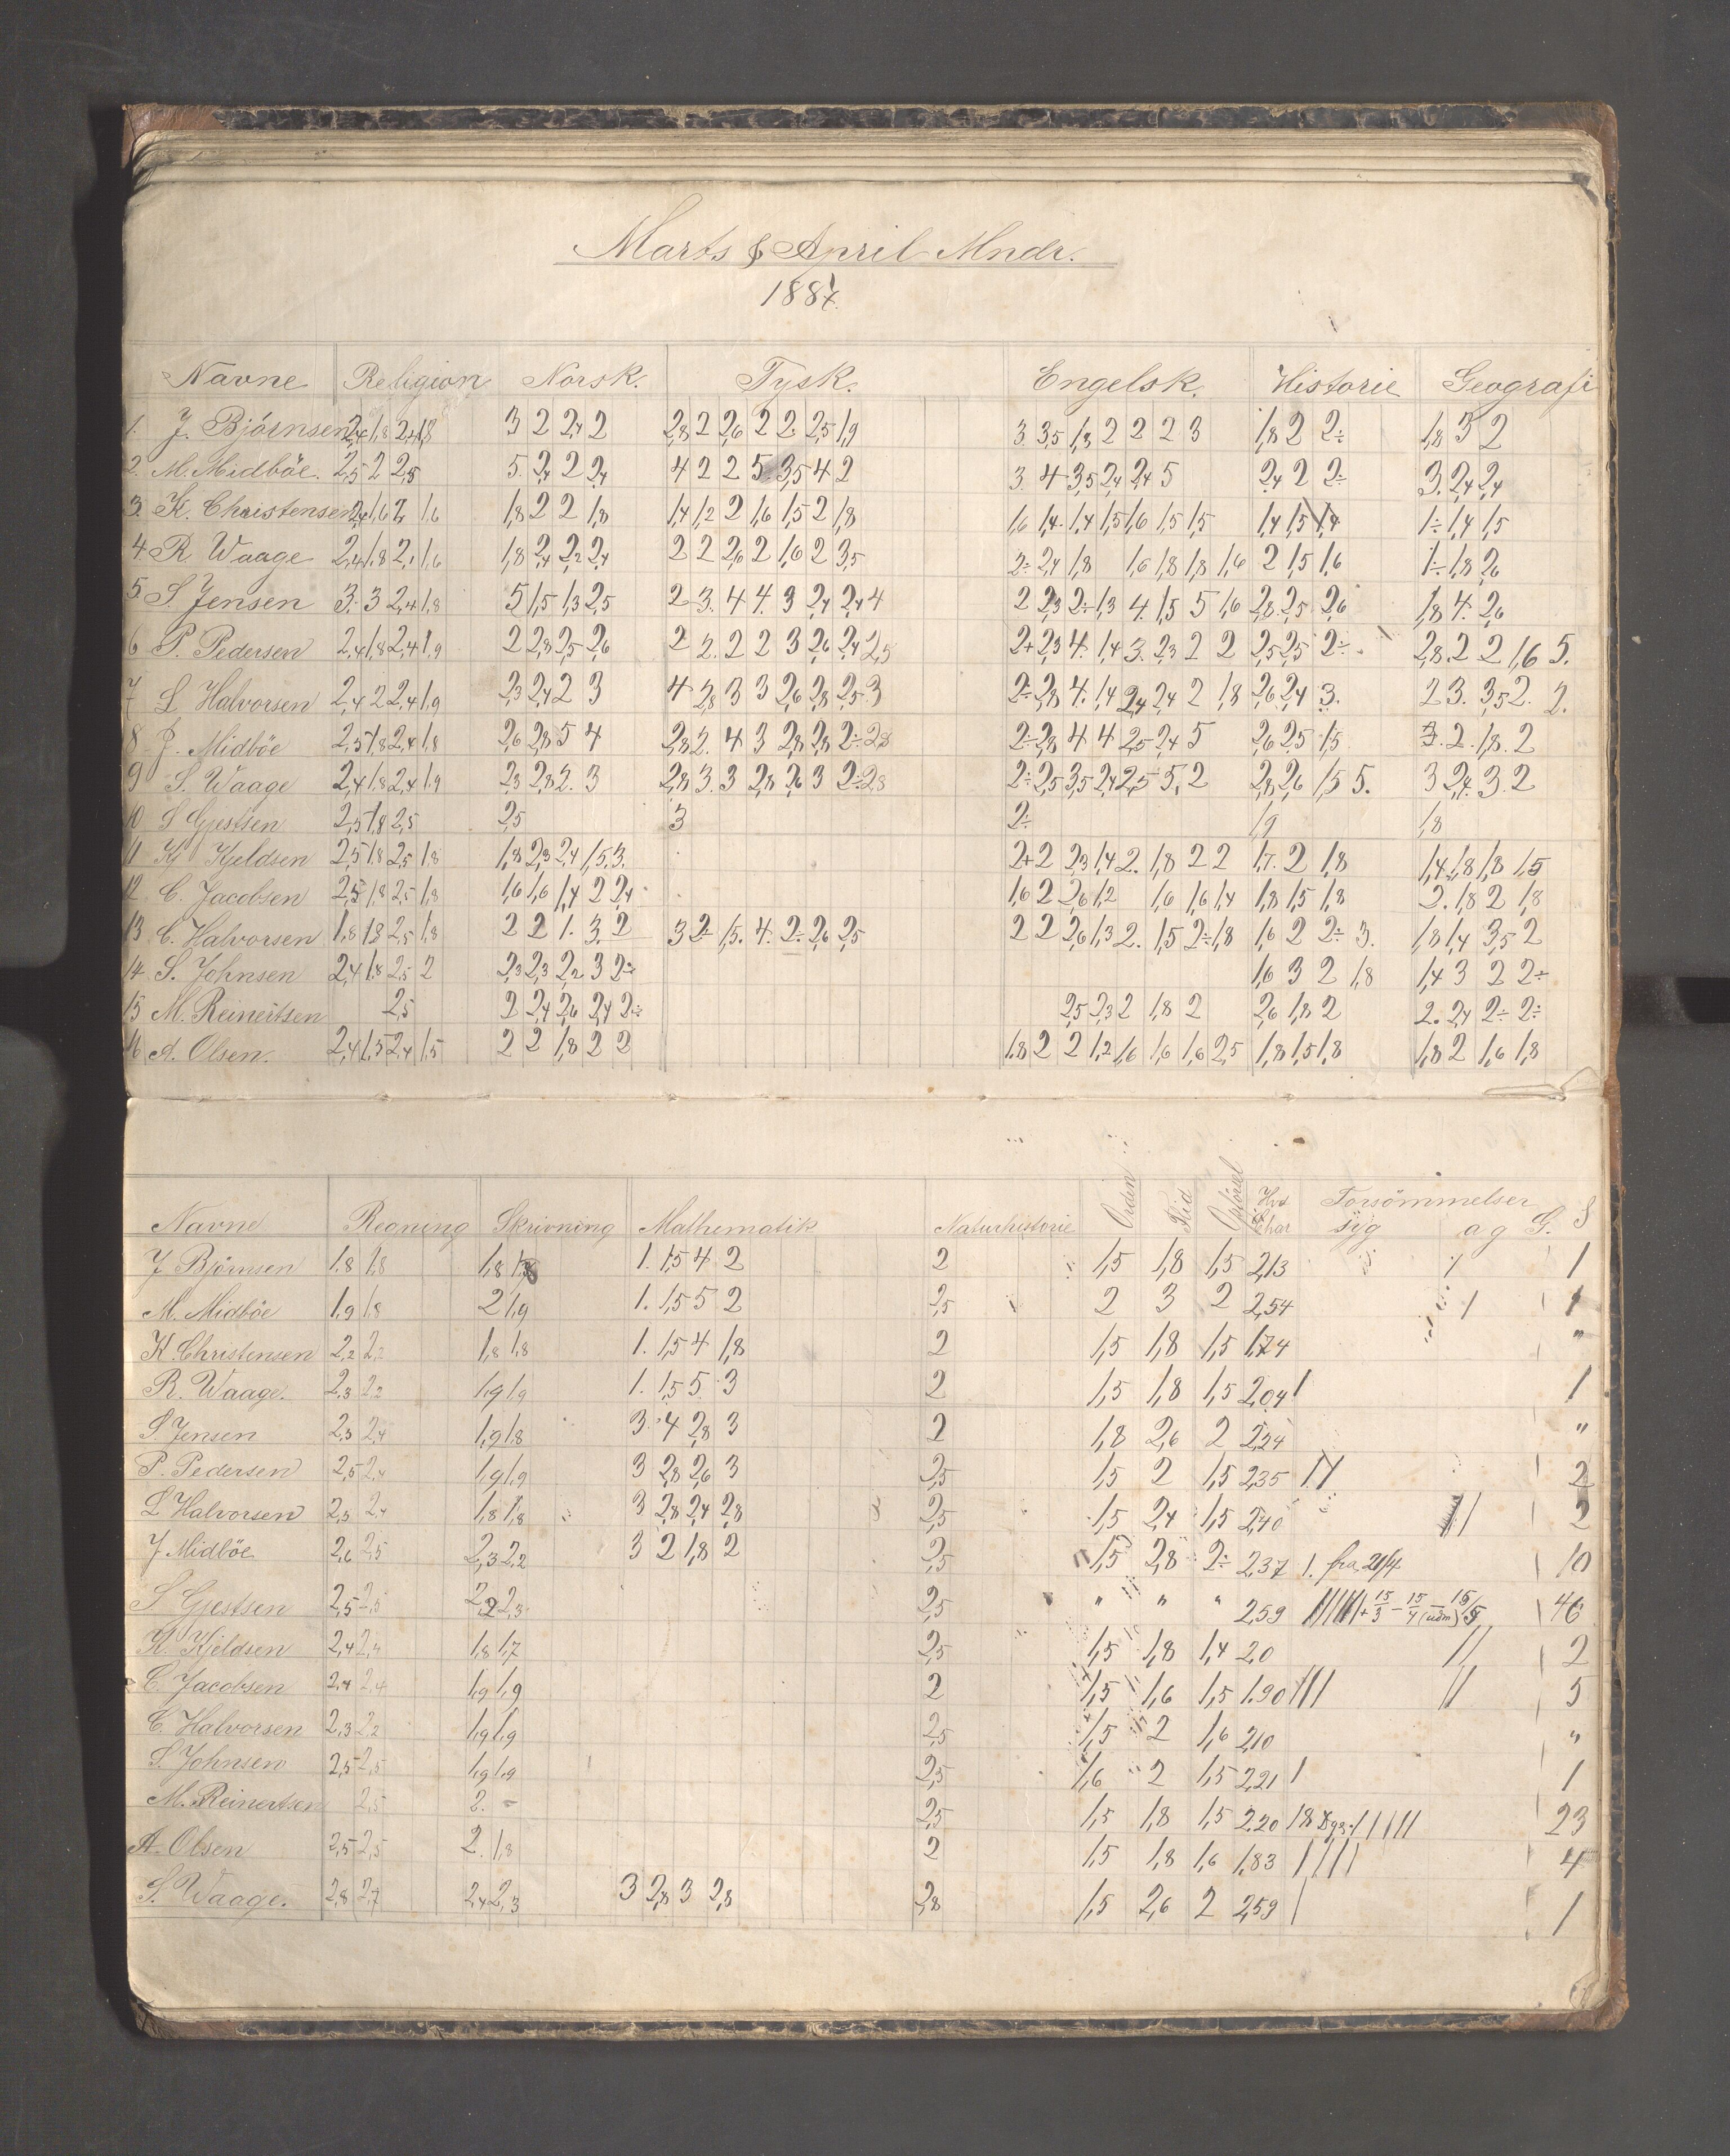 Marts & April Mndr.
1887.
Navne Religion Norsk. Tysk. Engelsk. Historie Geografi
1. J. Björnsen 2,4 1,8 2,4 1,8 3 2 2,4 2 2,8 2 2,6 2 2 2,5 1,9 3. 3,5 1,8 2 2 2 3 1,8 2 2÷ 1,8 3 2
2. M. Midböe. 2,5 2 2,5 5. 2,4 2 2,4 4 2 2 5 3,5 4 2 3. 4 3,5 2,4 2,4 5 2,4 2 2÷ 3. 2,4 2,4
3. K. Christensen 2,4 1,6 2, 1,6 1,8 2 2 1,8 1,4 1,2 2 1,6 1,5 2 1,8 1,6 1,4 1,4 1,5 1,6 1,5 1,5 1,4 1,5 1,4 1÷ 1,4 1,5
4 R. Waage 2,4 1,8 2,1 1,6 1,8 2,4 2,2 2,4 2 2 2,6 2 1,6 2 3,5 2÷ 2,4 1,8 1,6 1,8 1,8 1,6 2 1,5 1,6 1÷ 1,8 2,6
5 S. Jensen 3. 3 2,4 1,8 5 1,5 1,3 2,5 2 3. 4 4. 3 2,4 2,4 4 2 2,3 2÷ 1,3 4. 1,5 5 1,6 2,8. 2,5 2,6 1,8 4. 2,6
6 P. Pedersen 2,4 1,8 2,4 1,9 2 2,8 2,5 2,6 2 2. 2 2 3 2,6 2,4 2,5 2+ 2,3 4. 1,4 3. 2,3 2 2 2,5 2,5 2÷ 2,8. 2 2 1,6 5.
7 L Halvorsen 2,4 2 2,4 1,9 2,3 2,4 2 3 4 2,8 3 3 2,6 2,8 2,5 3 2÷ 2,8 4. 1,4 2,4 2,4 2 1,8 2,6 2,4 3. 2 3. 3,5 2. 2.
8 J. Midböe 2,5 1,8 2,4 1,8 2,6 2,8 5 4 2,8 2. 4 3 2,8 2,8 2÷ 2,8 2÷ 2,8 4 4 2,5 2,4 5 2,6 2,5 1,5 3. 2. 1,8. 2
9 S. Waage 2,4 1,8 2,4 1,9 2,3 2,8 2. 3 2,8 3. 3 2,8 2,6 3 2÷ 2,8 2÷ 2,5 3,5 2,4 2,5 5, 2 2,8 2,6 1,5 5. 3 2,4. 3. 2
10 S Gjestsen 2,5 1,8 2,5 2,5 3 2÷ 1,9 1,8
11 Kj Kjeldsen 2,5 1,8 2,5 1,8 1,8 2,3 2,4 1,5 3. 2+ 2 2,3 1,4 2. 1,8 2 2 1,7. 2 1,8 1,4 1,8 1,8 1,5
12. C. Jacobsen 2,5 1,8 2,5 1,8 1,6 1,6 1,4 2 2,4 1,6 2 2,6 1,2 1,6 1,6 1,4 1,8 1,5 1,8 2. 1,8 2 1,8
13 C. Halvorsen 1,8 1,8 2,5 1,8 2 2 1. 3. 2 3 2÷ 1,5. 4. 2÷ 2,6 2,5 2 2 2,6 1,3 2. 1,5 2÷ 1,8 1,6 2 2÷ 3. 1,8 1,4 3,5 2
14. S. Johnsen 2,4 1,8 2,5 2 2,3 2,3 2,2 3 2÷ 1,6 3 2 1,8 1,4 3 2 2÷
15 M. Reinertsen 2,5 2 2,4 2,6 2,4 2÷ 2,5 2,3 2 1,8 2 2,6 1,8 2 2. 2,4 2÷ 2÷
16 A. Olsen. 2,4 1,5 2,4 1,5 2 2 1,8 2 2 1,8 2 2 1,2 1,6 1,6 1,6 2,5 1,8 1,5 1,8 1,8 2 1,6 1,8
Navne Regning Skrivning Mathematik Naturhistorie Orden Flid Opförsel Hvd Forsömmelser
syg a g G. S
J Björnsen 1,8 1,8 1,8 1,8 1. 1,5 4 2 2 1,5 1,8 1,5 2,13 1 1
M. Midböe 1,9 1,8 2 1,9 1. 1,5 5 2 2,5 2 3 2 2,54 1 1
K. Christensen 2,2 2,2 1,8 1,8 1. 1,5 4 1,8 2 1,5 1,8 1,5 1,74 "
R. Waage. 2,3 2,2 1,9 1,9 1. 1,5 5 3 2 1,5 1,8 1,5 2,04 1 1
S. Jensen 2,3 2,4 1,9 1,8 3. 4 2,8 3 2 1,8 2,6 2 2,24 "
P. Pedersen 2,5 2,4 1,9 1,9 3 2,8 2,6 3 2,5 1,5 2 1,5 2,35 11 2
L Halvorsen 2,3 2,4 1,8 1,8 3 2,8 2,4 2,8 2,5 1,5 2,4 1,5 2,40 11 2
J Midböe 2,6 2,5 2,3 2,2 3 2 1,8 2 2,5 1,5 2,8 2÷ 2,37 1. fra 20/4 10
S Gjestsen 2,5 2,5 2,2 2,3 2,5 " " " 2,59 + 15/3 - 15/4 46
K. Kjeldsen 2,4 2,4 1,8 1,7 2,5 1,5 1,8 1,4 2,0 11 2
C. Jacobsen 2,4 2,4 1,9 1,9 2 1,5 1,6 1,5 1,90 111 11 5
C. Halvorsen 2,3 2,2 1,9 1,9 2,5 1,5 2 1,6 2,10 "
S. Johnsen 2,5 2,5 1,9 1,9 2,5 1,6 2 1,5 2,21 1 1
M. Reinertsen 2,5 2. - 2,5 1,5 1,8 1,5 2,20 18 Dge 11111 23
A. Olsen 2,5 2,5 2. 1,8 2 1,5 1,8 1,6 1,83 1111 4
S. Waage. 2,8 2,7 2,4 2,3 3 2,8 3 2,8 2,8 1,5 2,6 2 2,59 1 1